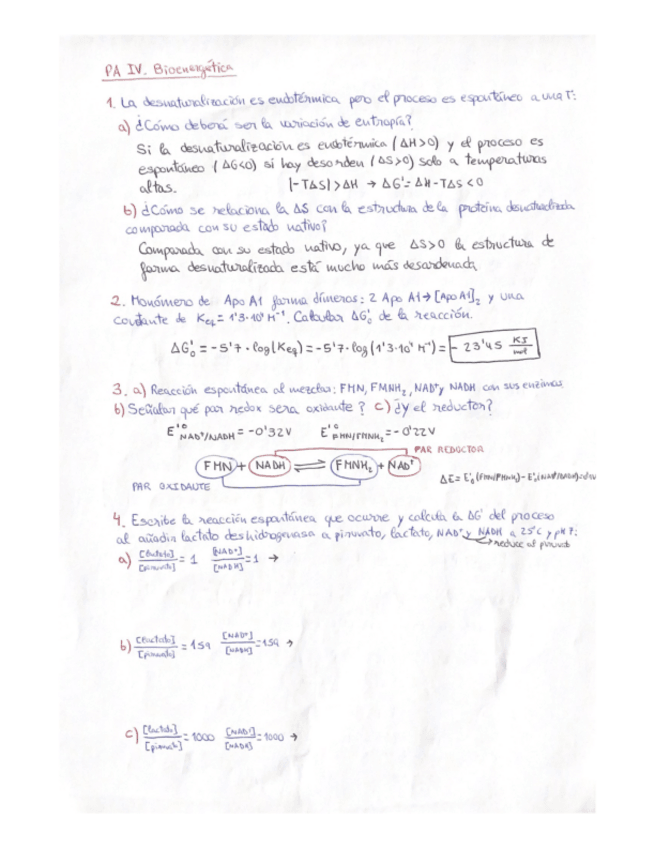 PA IV. Bioenergética
1. La desnaturalización es endotérmica pero el proceso es espontáneo a una T:
a) ¿Cómo deberá ser la variación de entropía?
Si la desnaturalización es endotérmica (ΔH>0) y el proceso es
espontáneo (ΔG<0) si hay desorden (ΔS>0) solo a temperaturas
altas. |-TΔS| > ΔH → ΔG'= ΔH-TΔS < 0
b) ¿Cómo se relaciona la ΔS con la estructura de la proteína desnaturalizada
comparada con su estado nativo?
Comparada con su estado nativo, ya que ΔS>0 la estructura de
forma desnaturalizada está mucho más desordenada
2. Monómero de Apo A1 forma dímeros: 2 Apo A1 → [Apo A1]₂ y una
constante de Keq = 1'3·10⁴ M⁻¹. Calcular ΔG'₀ de la reacción.
ΔG'₀ = -5'7 · log(Keq) = -5'7 · log(1'3·10⁴ M⁻¹) = - 23'45 KJ/mol
3. a) Reacción espontánea al mezclar: FMN, FMNH₂, NAD⁺ y NADH con sus enzimas
b) Señalar qué par redox sera oxidante? c) ¿y el reductor?
E'⁰ NAD⁺/NADH = -0'32V E'⁰ FMN/FMNH₂ = -0'22V
PAR REDUCTOR
FMN + NADH ⇌ FMNH₂ + NAD⁺
PAR OXIDANTE
ΔE = E'₀ (FMN/FMNH₂) - E'₀ (NAD⁺/NADH)
4. Escribe la reacción espontánea que ocurre y calcula la ΔG' del proceso
al añadir lactato deshidrogenasa a piruvato, lactato, NAD⁺ y NADH a 25°C y pH 7:
reduce al piruvato
a) [lactato]/[piruvato] = 1 [NAD⁺]/[NADH] = 1 →
b) [lactato]/[piruvato] = 159 [NAD⁺]/[NADH] = 159 →
c) [lactato]/[piruvato] = 1000 [NAD⁺]/[NADH] = 1000 →